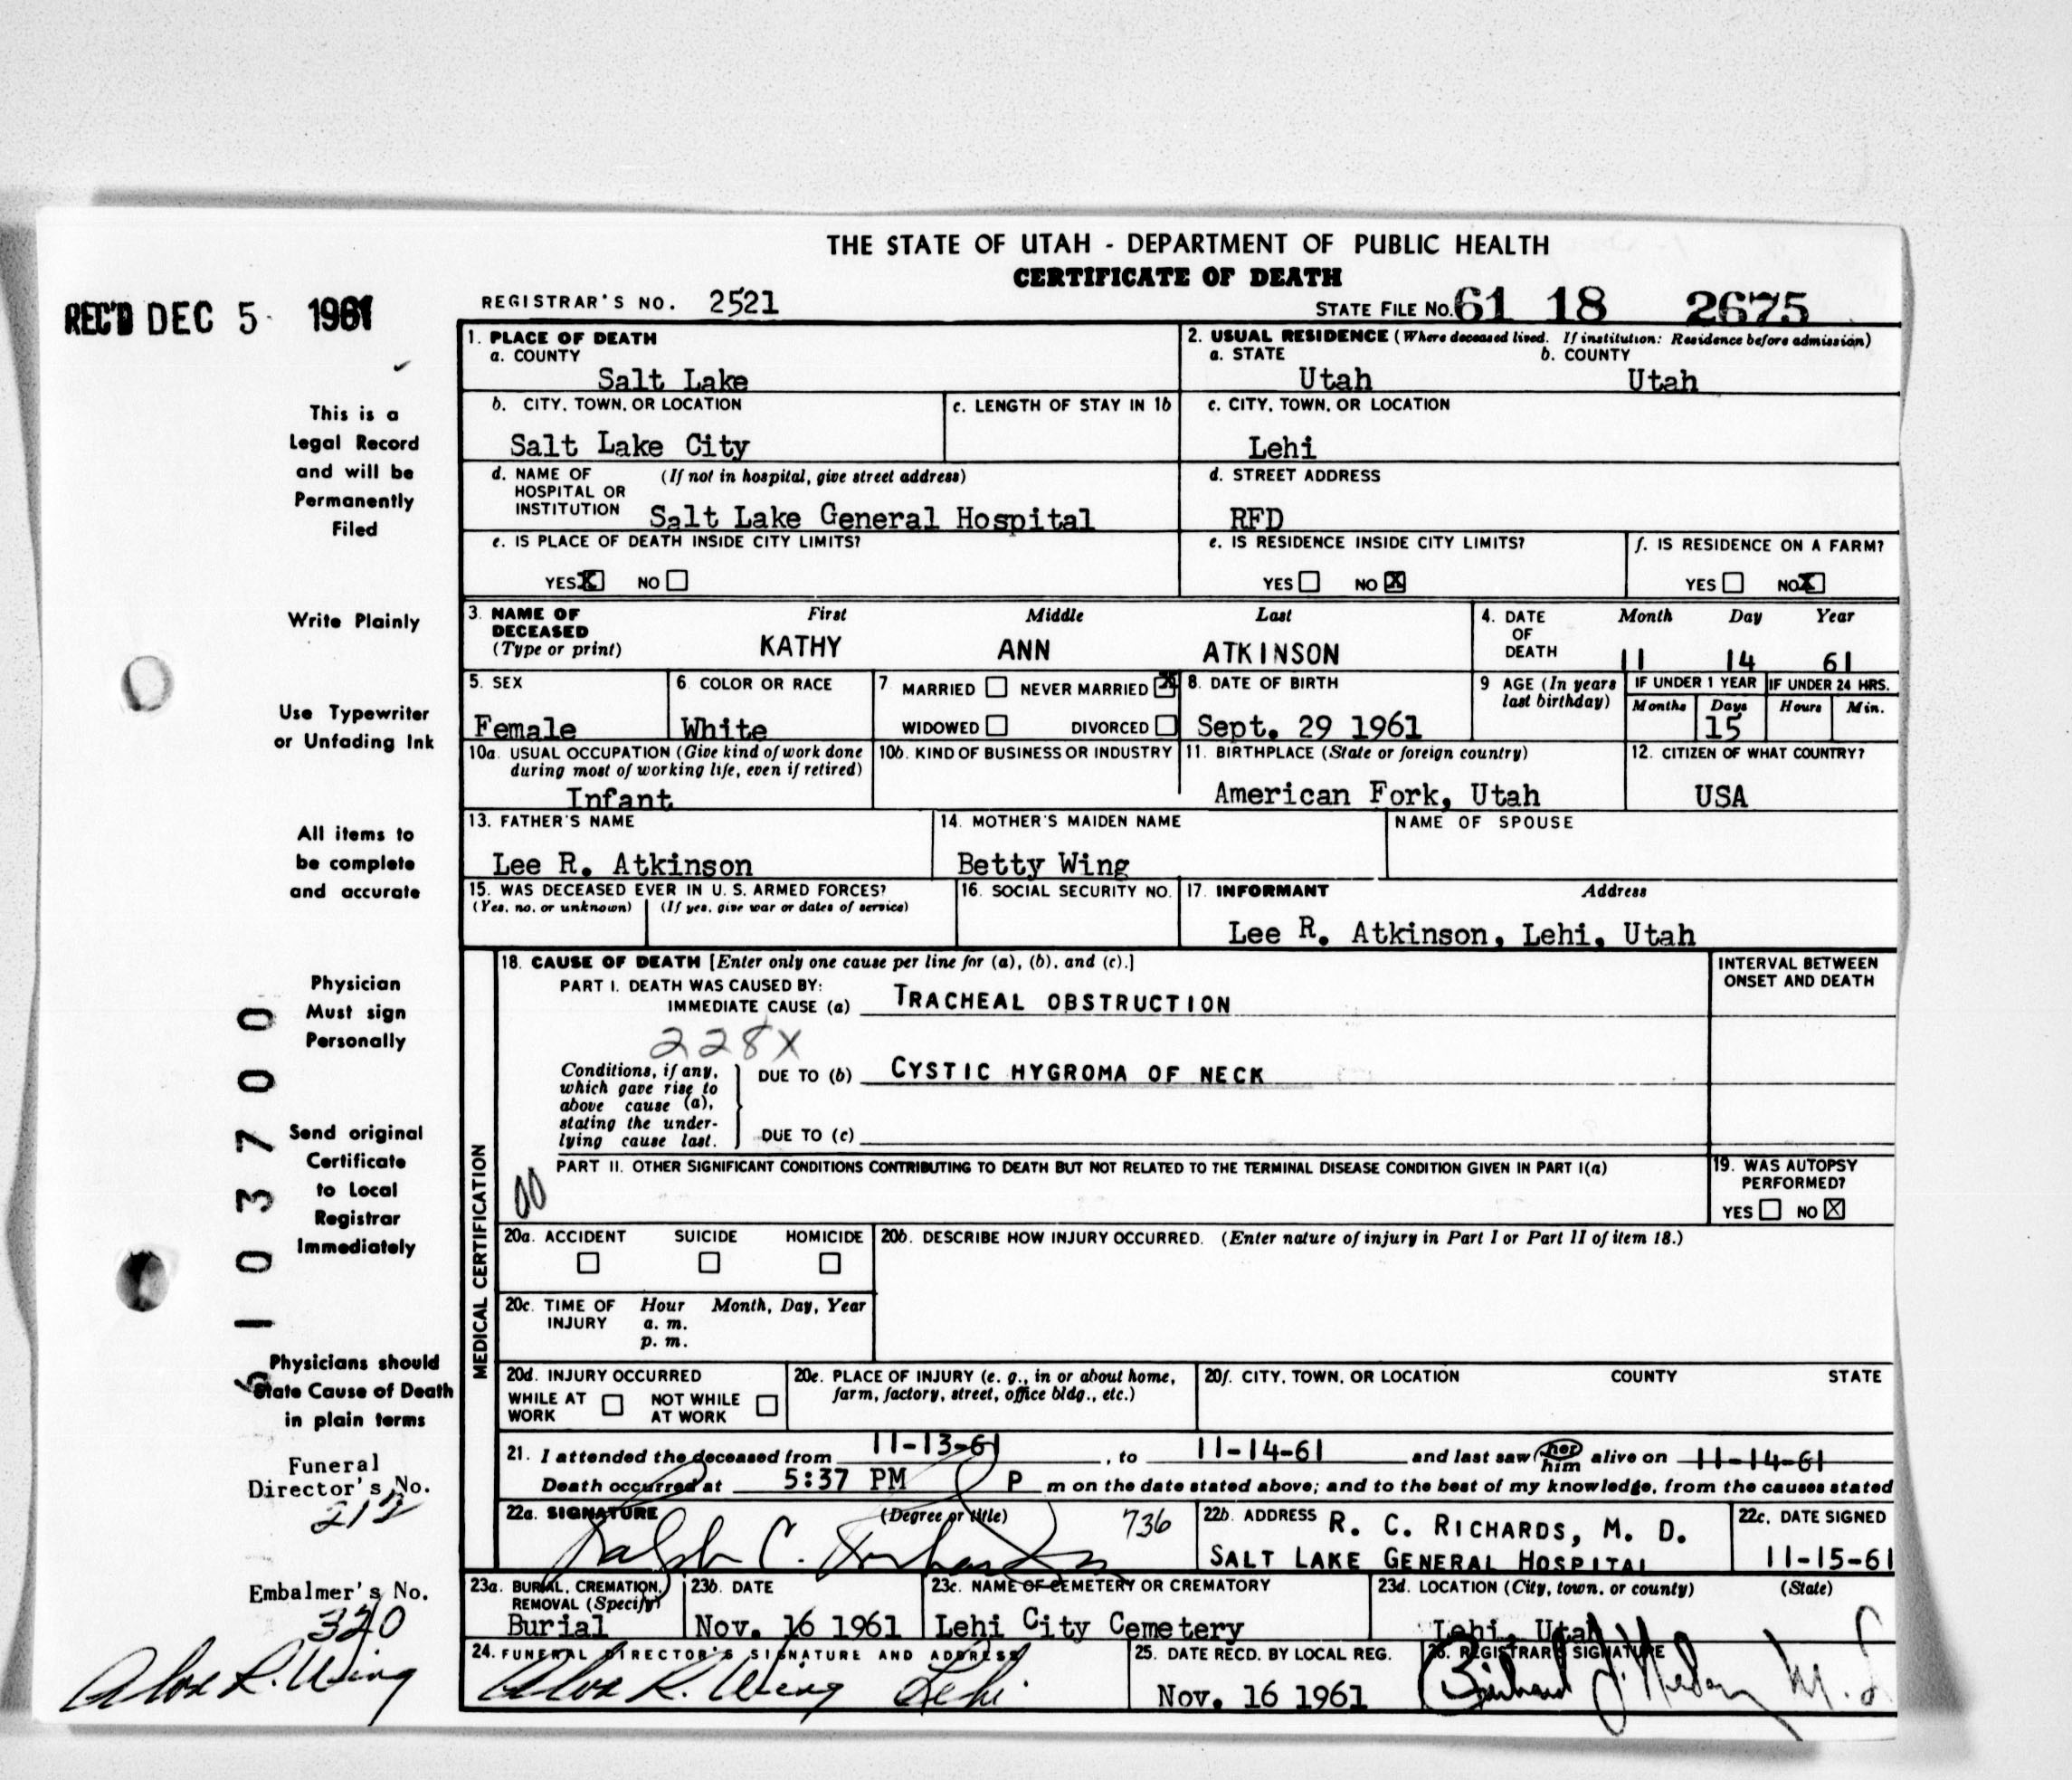 THE STATE OF UTAH - DEPARTMENT OF PUBLIC HEALTH
CERTIFICATE OF DEATH
REC'D DEC 5 1961
REGISTRAR'S NO. 2521
STATE FILE NO. 61 18 2675
1. PLACE OF DEATH
a. COUNTY
Salt Lake
2. USUAL RESIDENCE (Where deceased lived. If institution: Residence before admission)
a. STATE b. COUNTY
Utah Utah
b. CITY, TOWN, OR LOCATION
Salt Lake City
c. LENGTH OF STAY IN 1b
c. CITY, TOWN, OR LOCATION
Lehi
d. NAME OF HOSPITAL OR INSTITUTION (If not in hospital, give street address)
Salt Lake General Hospital
d. STREET ADDRESS
RFD
e. IS PLACE OF DEATH INSIDE CITY LIMITS?
YES X NO
e. IS RESIDENCE INSIDE CITY LIMITS?
YES NO X
f. IS RESIDENCE ON A FARM?
YES NO X
3. NAME OF DECEASED (Type or print)
First Middle Last
KATHY ANN ATKINSON
4. DATE OF DEATH
Month Day Year
11 14 61
5. SEX
Female
6. COLOR OR RACE
White
7. MARRIED NEVER MARRIED X
WIDOWED DIVORCED
8. DATE OF BIRTH
Sept. 29 1961
9 AGE (In years last birthday)
IF UNDER 1 YEAR IF UNDER 24 HRS.
Months Days Hours Min.
15
10a. USUAL OCCUPATION (Give kind of work done during most of working life, even if retired)
Infant
10b. KIND OF BUSINESS OR INDUSTRY
11. BIRTHPLACE (State or foreign country)
American Fork, Utah
12. CITIZEN OF WHAT COUNTRY?
USA
13. FATHER'S NAME
Lee R. Atkinson
14. MOTHER'S MAIDEN NAME
Betty Wing
NAME OF SPOUSE
15. WAS DECEASED EVER IN U. S. ARMED FORCES?
(Yes, no, or unknown) (If yes, give war or dates of service)
16. SOCIAL SECURITY NO.
17. INFORMANT Address
Lee R. Atkinson, Lehi, Utah
MEDICAL CERTIFICATION
18. CAUSE OF DEATH [Enter only one cause per line for (a), (b), and (c).]
PART I. DEATH WAS CAUSED BY:
IMMEDIATE CAUSE (a) TRACHEAL OBSTRUCTION
INTERVAL BETWEEN ONSET AND DEATH
228X
Conditions, if any, which gave rise to above cause (a), stating the underlying cause last.
DUE TO (b) CYSTIC HYGROMA OF NECK
DUE TO (c)
PART II. OTHER SIGNIFICANT CONDITIONS CONTRIBUTING TO DEATH BUT NOT RELATED TO THE TERMINAL DISEASE CONDITION GIVEN IN PART I(a)
00
19. WAS AUTOPSY PERFORMED?
YES NO X
20a. ACCIDENT SUICIDE HOMICIDE
20b. DESCRIBE HOW INJURY OCCURRED. (Enter nature of injury in Part I or Part II of item 18.)
20c. TIME OF INJURY Hour Month, Day, Year
a. m.
p. m.
20d. INJURY OCCURRED
WHILE AT WORK NOT WHILE AT WORK
20e. PLACE OF INJURY (e. g., in or about home, farm, factory, street, office bldg., etc.)
20f. CITY, TOWN, OR LOCATION COUNTY STATE
21. I attended the deceased from 11-13-61, to 11-14-61 and last saw her him alive on 11-14-61
Death occurred at 5:37 PM P m on the date stated above; and to the best of my knowledge, from the causes stated
22a. SIGNATURE (Degree or title)
Ralph C. Richards 736
22b. ADDRESS R. C. RICHARDS, M. D.
SALT LAKE GENERAL HOSPITAL
22c. DATE SIGNED
11-15-61
23a. BURIAL, CREMATION, REMOVAL (Specify)
Burial
23b. DATE
Nov. 16 1961
23c. NAME OF CEMETERY OR CREMATORY
Lehi City Cemetery
23d. LOCATION (City, town, or county) (State)
Lehi, Utah
24. FUNERAL DIRECTOR'S SIGNATURE AND ADDRESS
Alva R. Wing Lehi
25. DATE RECD. BY LOCAL REG.
Nov. 16 1961
26. REGISTRAR'S SIGNATURE
M.D
This is a
Legal Record
and will be
Permanently
Filed
Write Plainly
Use Typewriter
or Unfading Ink
All items to
be complete
and accurate
Physician
Must sign
Personally
Send original
Certificate
to Local
Registrar
Immediately
Physicians should
State Cause of Death
in plain terms
Funeral
Director's No.
212
Embalmer's No.
320
Alva R. Wing
6103700